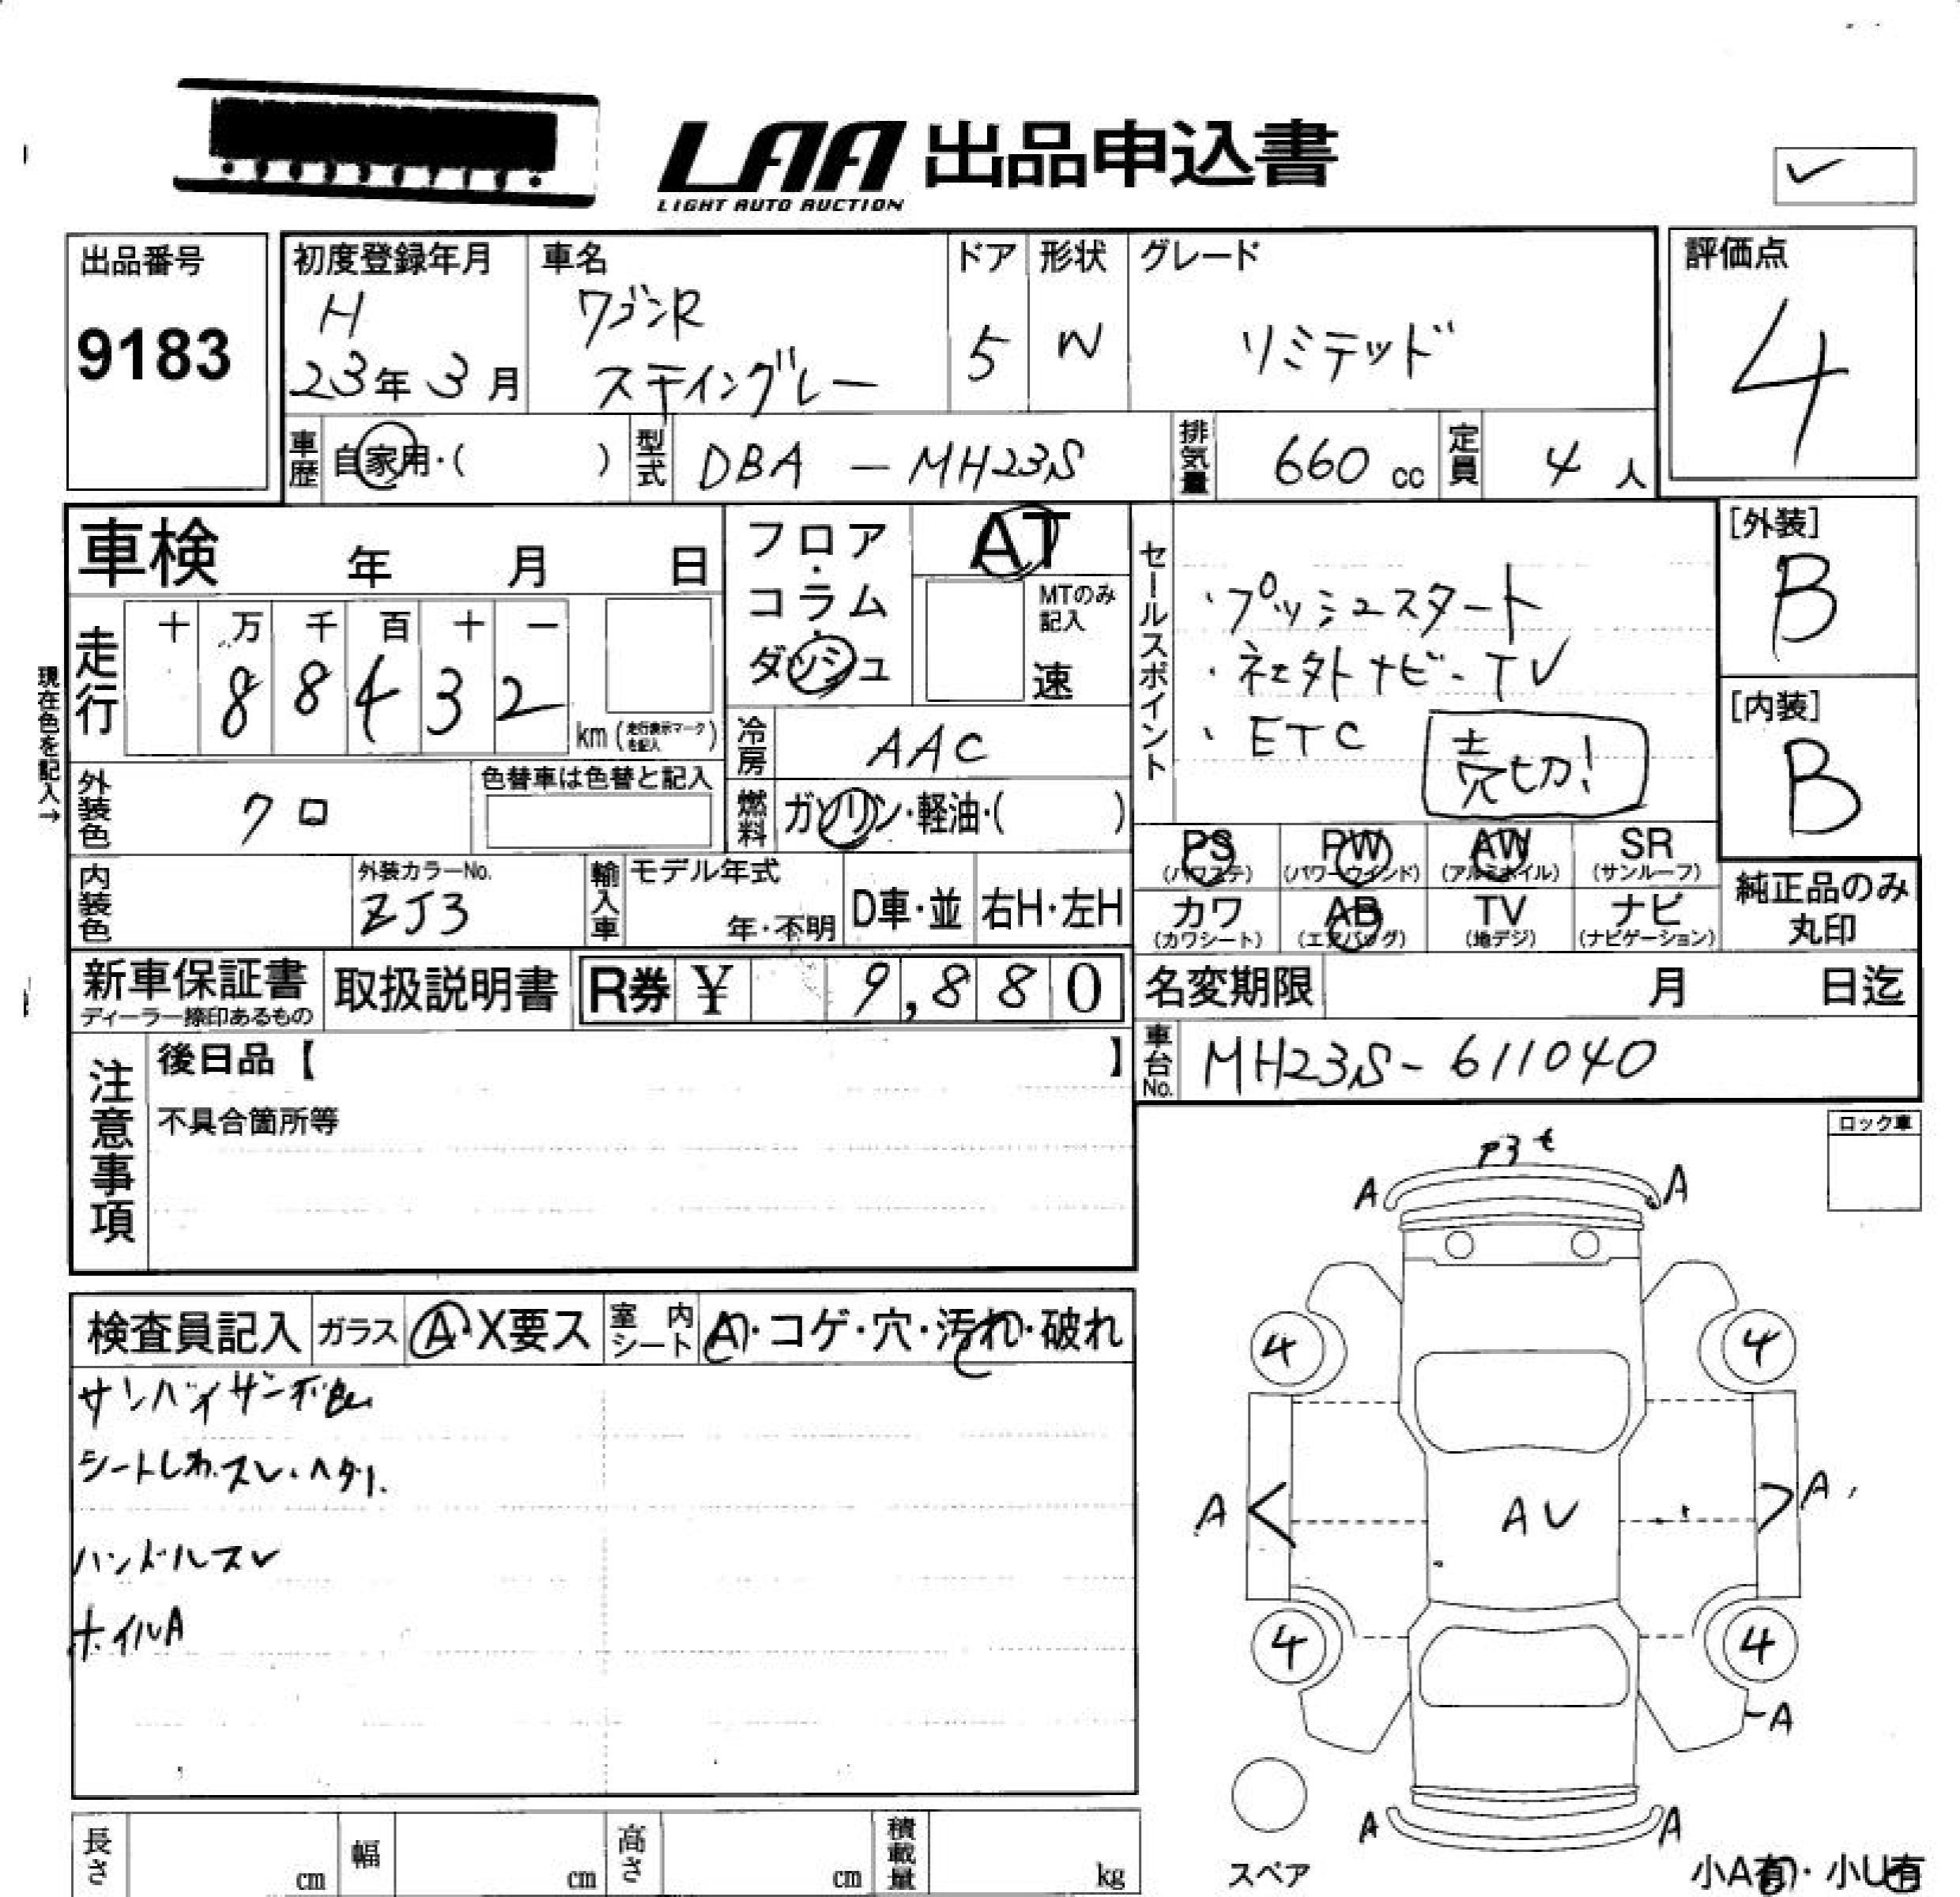 LAA 出品申込書
LIGHT AUTO AUCTION
出品番号
9183
初度登録年月
H
23年 3月
車名
ワゴンR
スティングレー
ドア
5
形状
W
グレード
リミテッド
評価点
4
車歴 自家用・( )
型式 DBA - MH23S
排気量 660 cc
定員 4 人
車検 年 月 日
走行 十 万 千 百 十 一
8 8 4 3 2
km (走行表示マークを記入)
現在色を記入→
フロア・コラム・ダッシュ
AT
MTのみ記入
速
冷房 AAC
燃料 ガソリン・軽油・( )
外装色 クロ
色替車は色替と記入
内装色
外装カラーNo.
ZJ3
輸入車 モデル年式
年・不明
D車・並
右H・左H
セールスポイント
・プッシュスタート
・社外ナビ-TV
・ETC
売切!
[外装]
B
[内装]
B
PS (パワステ)
PW (パワーウインド)
AW (アルミホイル)
SR (サンルーフ)
カワ (カワシート)
AB (エアバッグ)
TV (地デジ)
ナビ (ナビゲーション)
純正品のみ
丸印
新車保証書
ディーラー捺印あるもの
取扱説明書
R券 ¥ 9,880
名変期限 月 日迄
車台No. MH23S-611040
注意事項
後日品【 】
不具合箇所等
ロック車
検査員記入
ガラス A・X要ス
室内シート A・コゲ・穴・汚れ・破れ
サンバイザー不良
シートしわ.スレ.ヘタリ.
ハンドルスレ
ホイルA
A A
4 4
A AV A
4 4
A
A A
スペア
小A有・小U有
長さ cm
幅 cm
高さ cm
積載量 kg